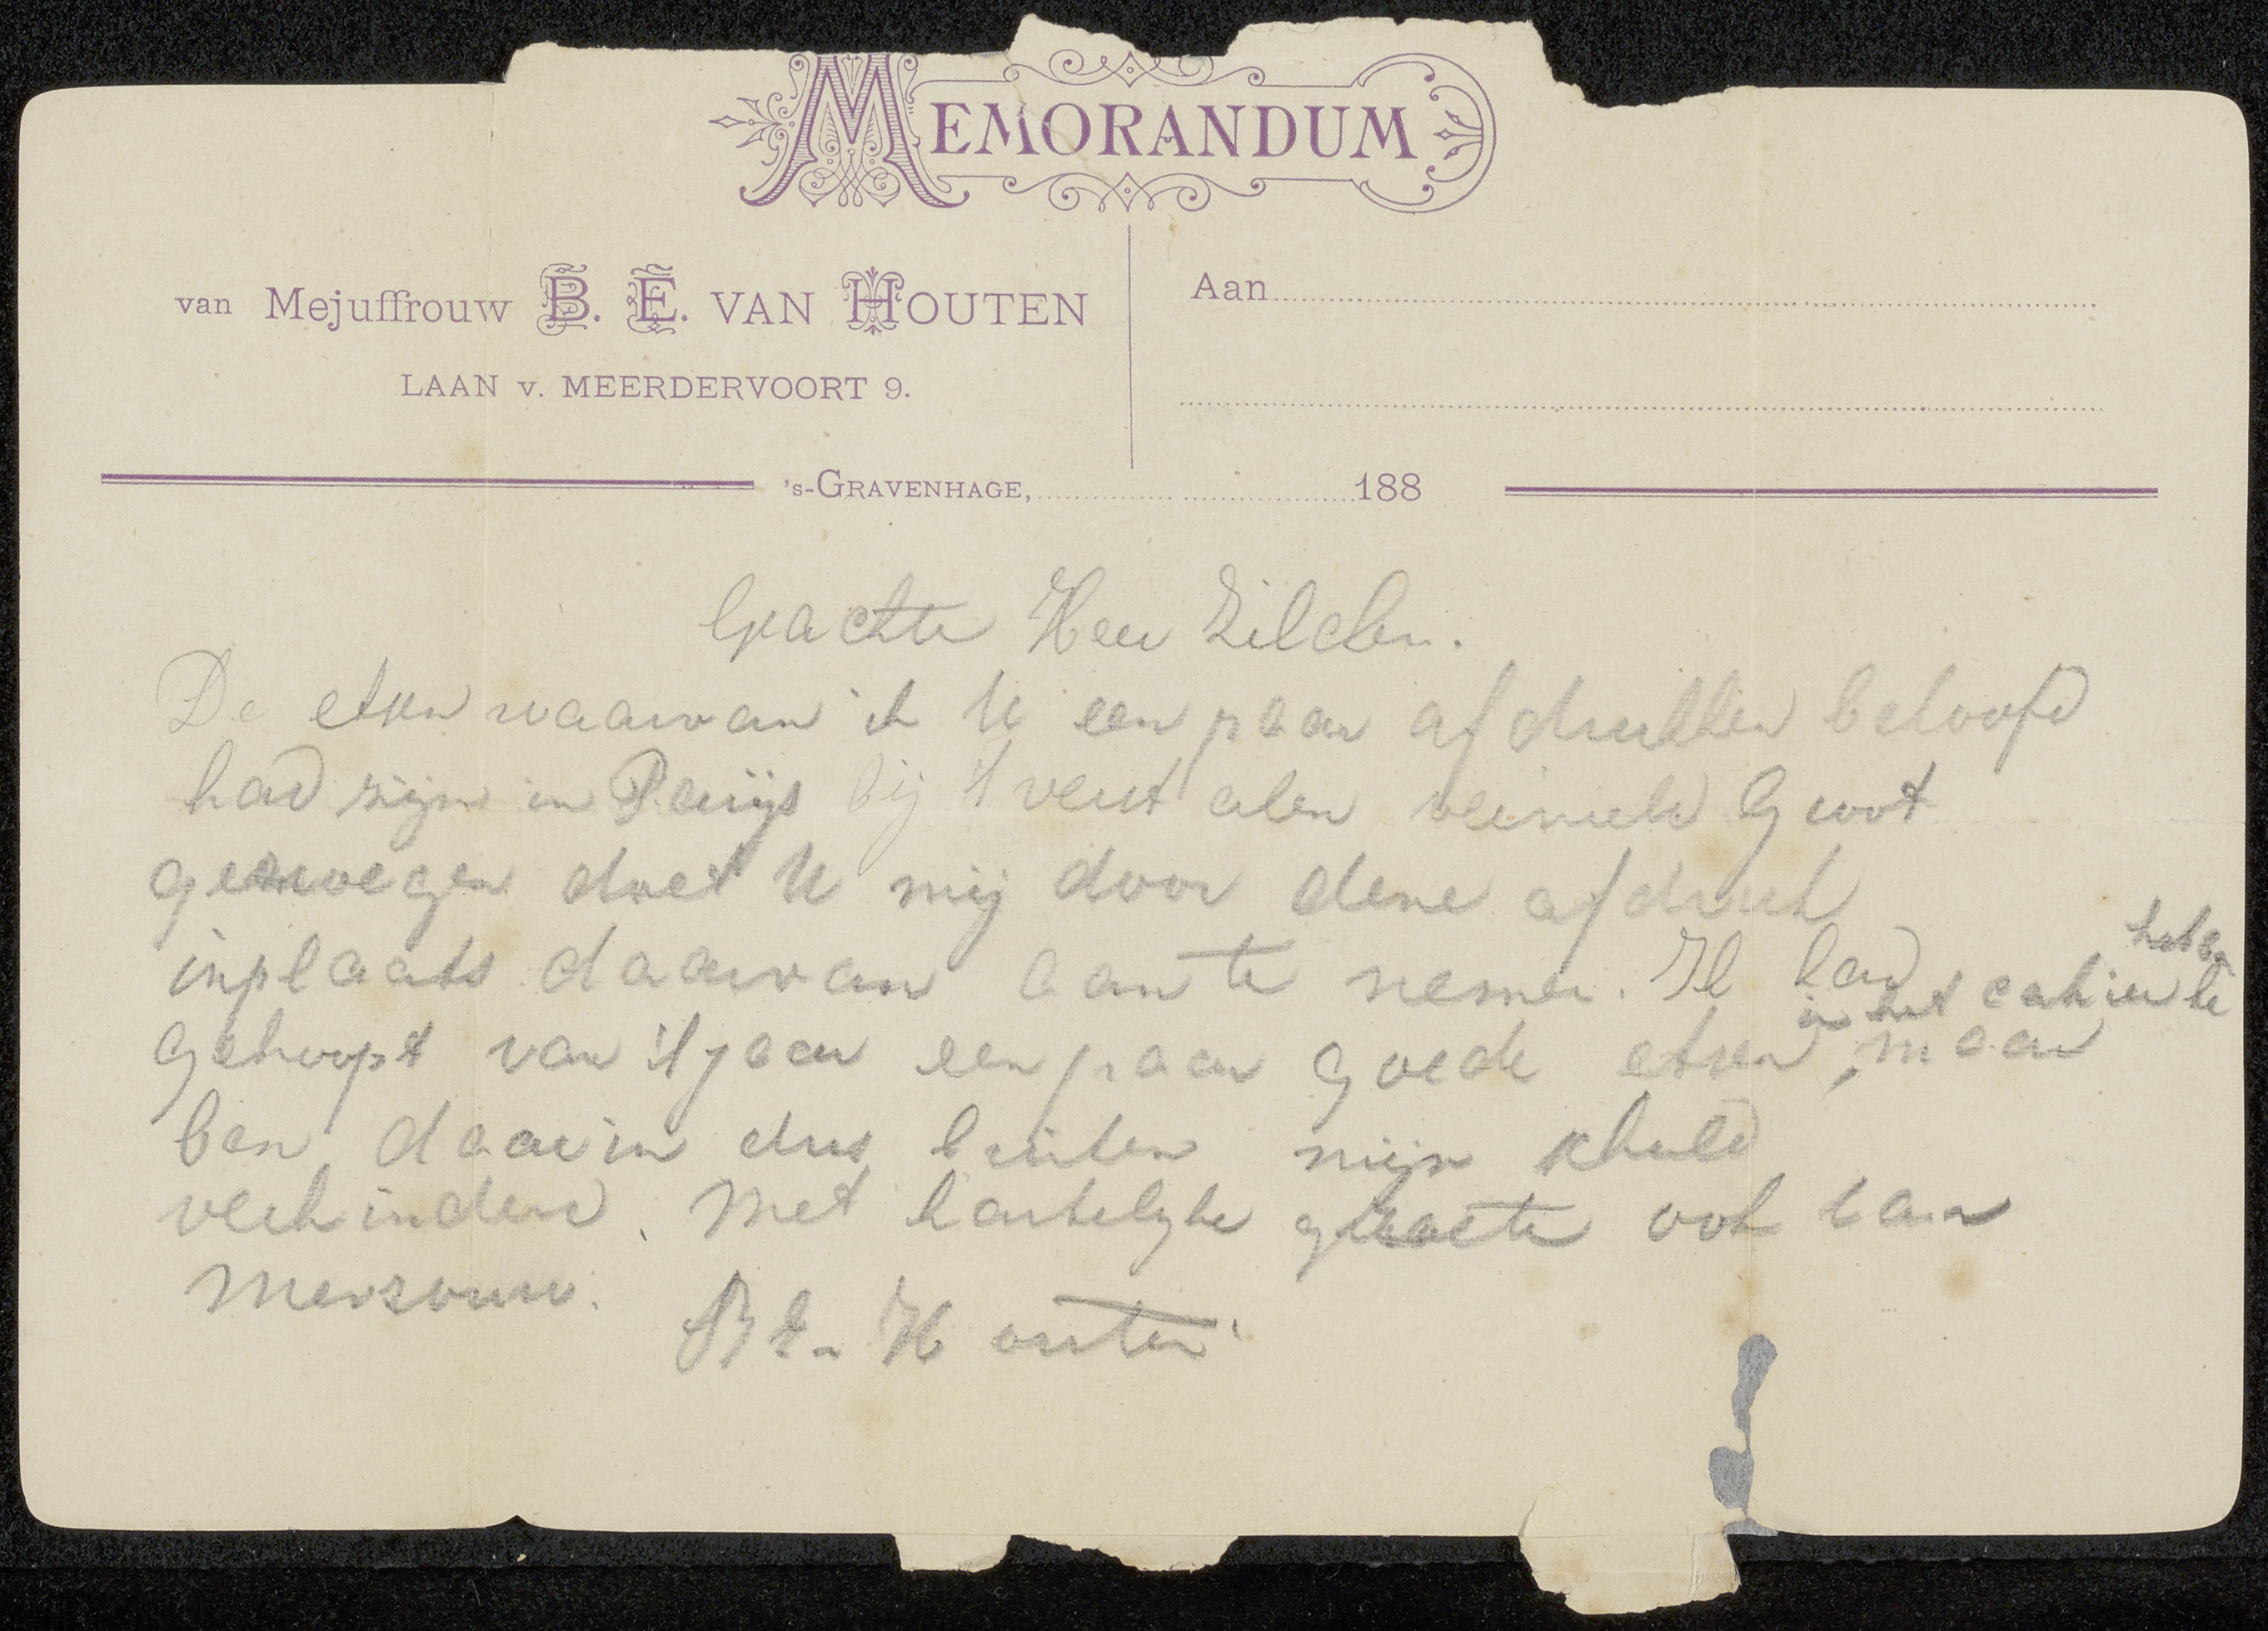 MEMORANDUM
van Mejuffrouw B. E. VAN HOUTEN
LAAN v. MEERDERVOORT 9.
Aan
's-GRAVENHAGE, 188
Geachte Heer Zilcken.
De etsen waarvan ik U een paar afdrukken beloofd
had zijn in Parijs bij 't verst alen vernield Groot
genoegen doet U mij door deze afdruk
inplaats daarvan aan te nemen. Ik had
gehoopt van 't jaar een paar goede etsen in het cahier te hebben, maar
ben daarin dus buiten mijn schuld
verhinderd. Met hartelijke groete ook aan
Mevrouw.
B v. Houten.